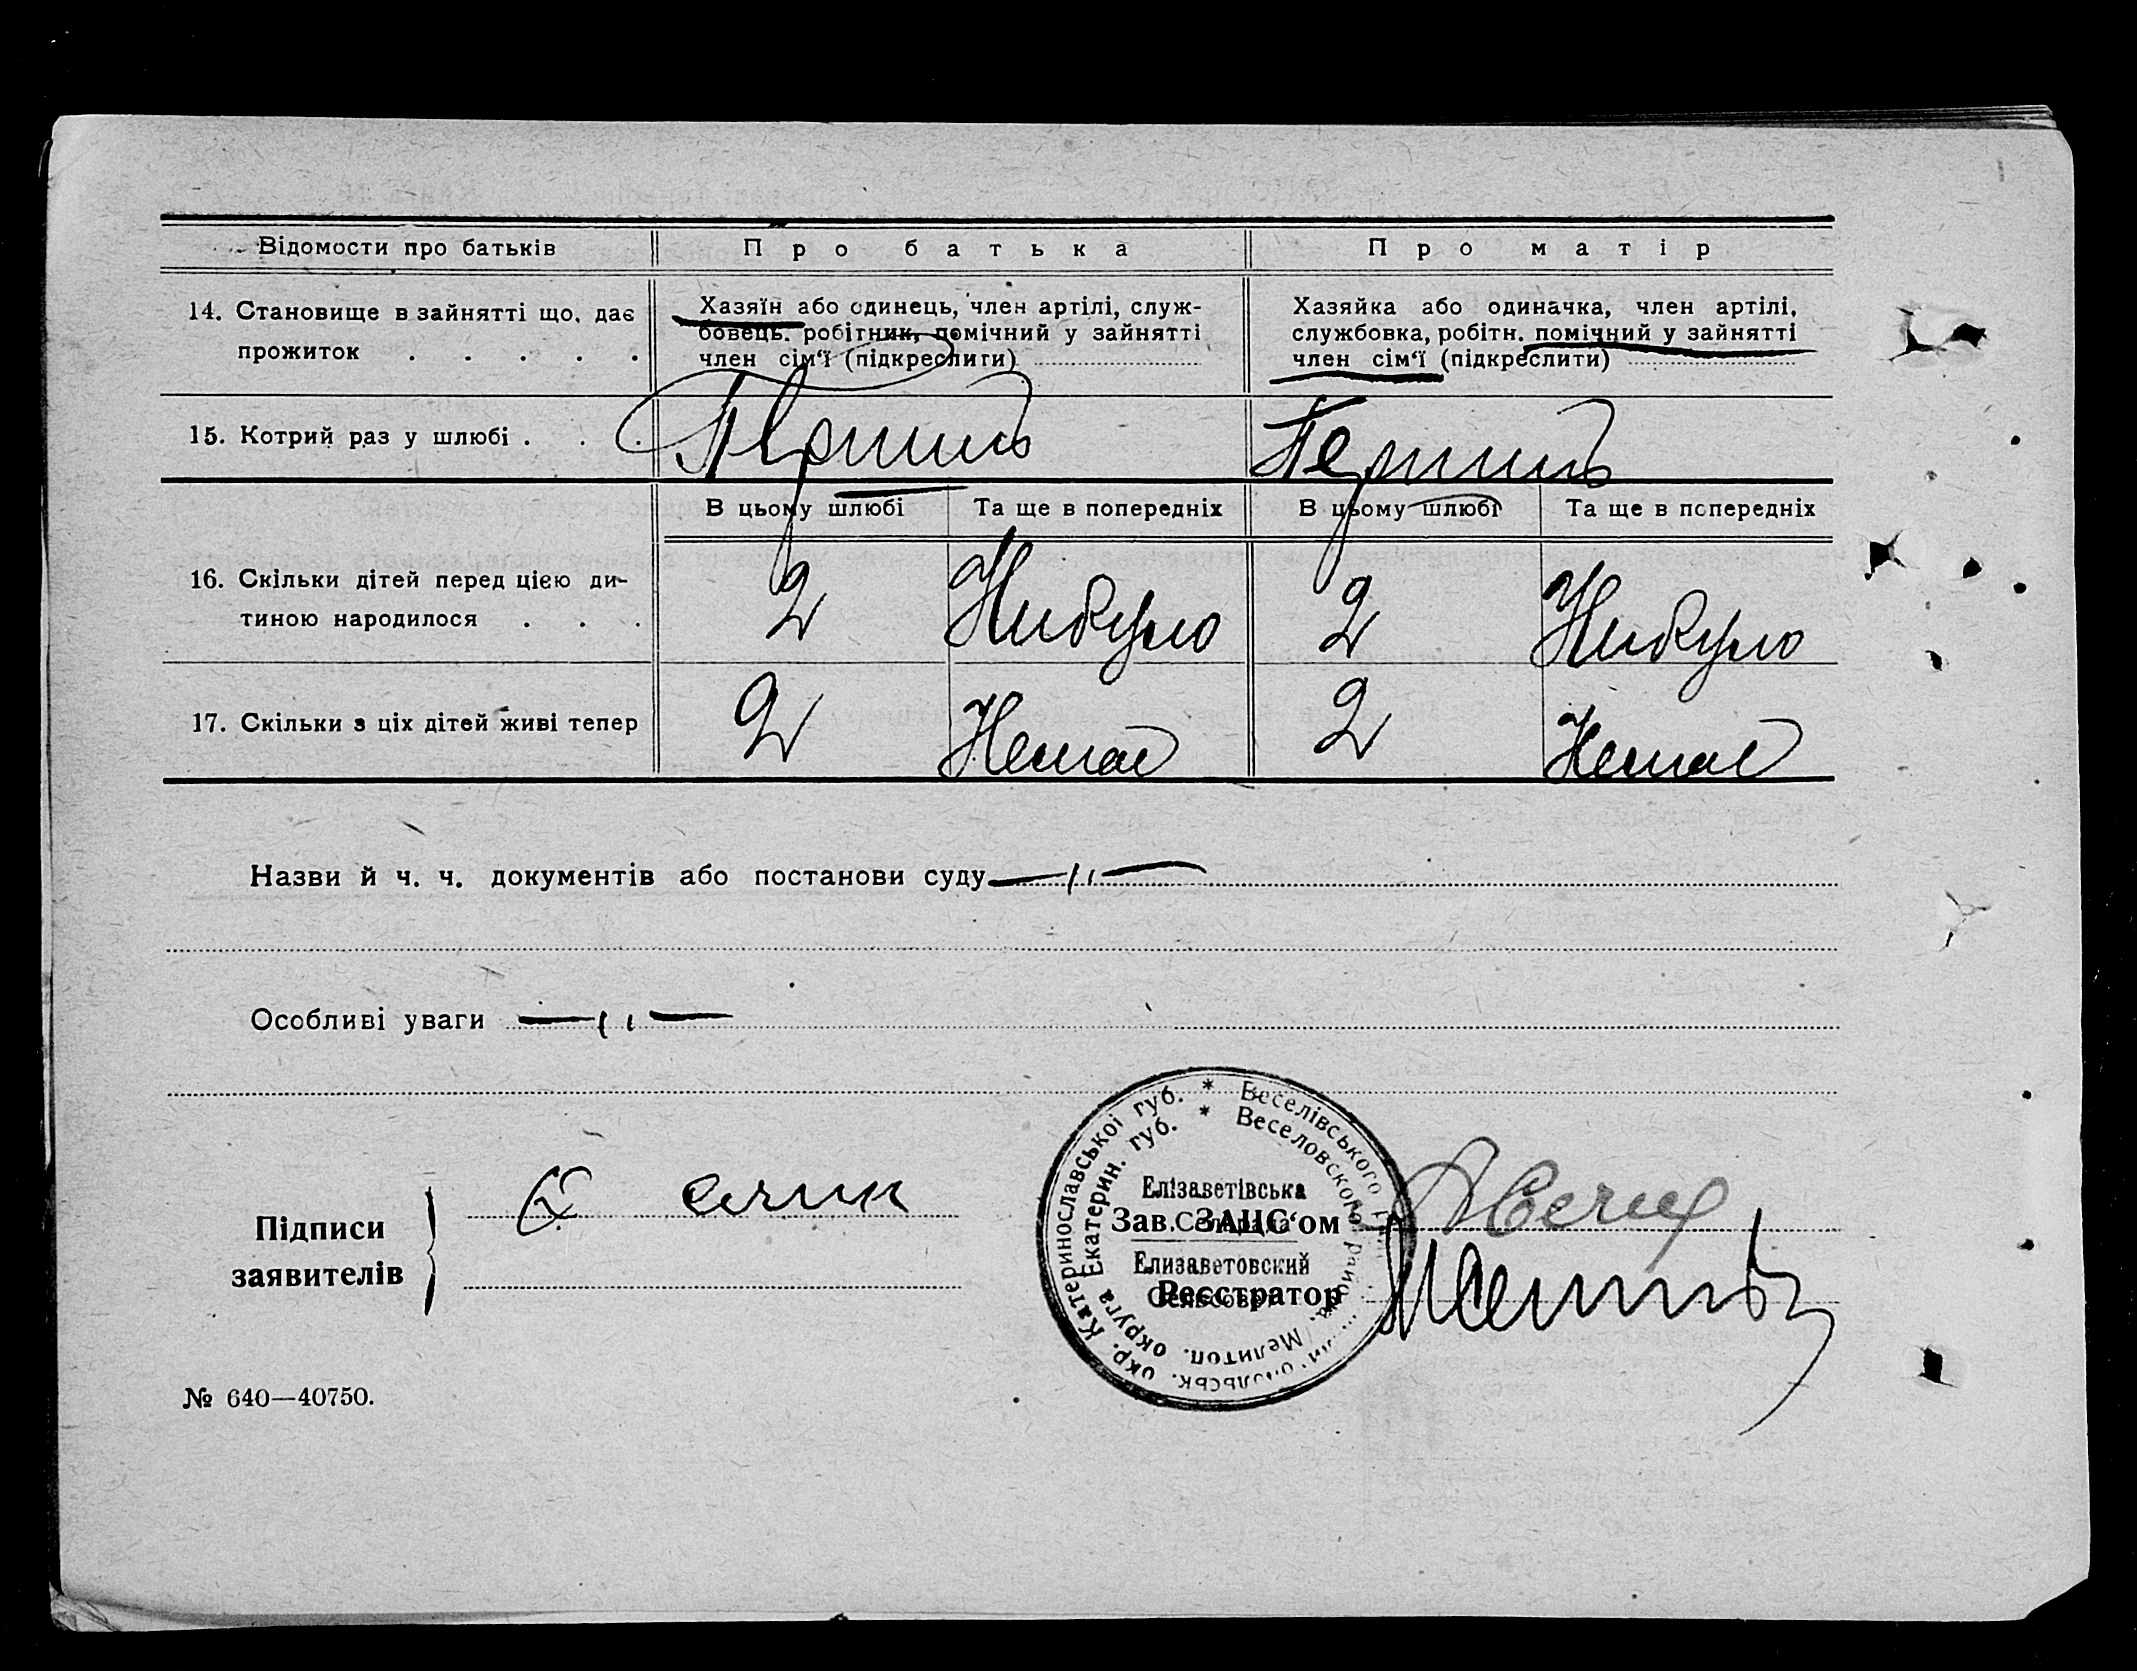 Відомости про батьків
Про батька
Про матір
14. Становище в зайнятті що, дає
прожиток . . . . .
Хазяїн або одинець, член артілі, служ-
бовець. робітник, помічний у зайнятті
член сім'ї (підкреслити)
Хазяйка або одиначка, член артілі,
службовка, робітн. помічний у зайнятті
член сім'ї (підкреслити)
15. Котрий раз у шлюбі . . .
Першиль
Першиль
В цьому шлюбі
Та ще в попередніх
В цьому шлюбі
Та ще в попередніх
16. Скільки дітей перед цією ди-
тиною народилося . . .
2
Нибуло
2
Нибуло
17. Скільки з ціх дітей живі тепер
2
Немає
2
Немає
Назви й ч. ч. документів або постанови суду —〃—
Особливі уваги —〃—
Підписи
заявителів
Зав. ЗАЦС'ом
Реєстратор
окр. Катеринославської губ. * Веселівського
округа Екатерин. губ. * Веселовского района, Мелитоп.
Елізаветівська
Сельрада
Елизаветовский
Сельсовет
№ 640—40750.